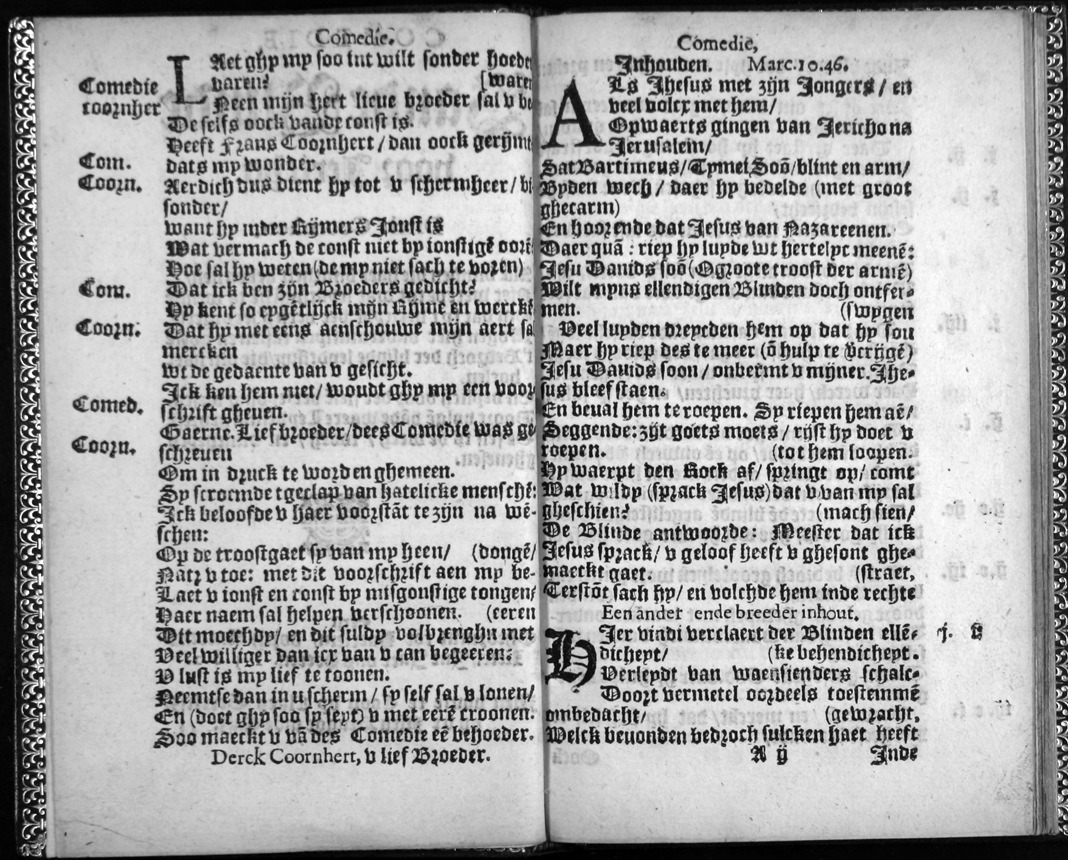 Comedie.
LAet ghy my soo int wilt sonder hoede
Comedie varen? [waren
coornher Neen mijn hert lieue broeder sal v be
De selfs oock vande const is.
Heeft Frans Coornhert/ dan oock gerijmt
Com. dats my wonder.
Coorn. Aerdich dus dient hy tot v schermheer/ bi
sonder/
want hy inder Rijmers Jonst is
Wat vermach de const niet by ionstigē oore
Hoe sal hy weten (de my niet sach te voren)
Com. Dat ick ben zijn Broeders gedicht?
Hy kent so eygētlijck mijn Rijme en werckē
Coorn. Dat hy met eens aenschouwe mijn aert sa
mercken
wt de gedaente van v gesicht.
Ick ken hem niet/ woudt ghy my een voor
Comed. schrift gheuen.
Coorn. Gaerne. Lief broeder/dees Comedie was ge
schreuen
Om in druck te worden ghemeen.
Sy scroemde tgeclap van hatelicke menschē:
Ick beloofde v haer voorstāt te zijn na wē-
schen:
Op de troost gaet sy van my heen/ (dongē/
Natr v toe: met dit voorschrift aen my be-
Laet v ionst en const by misgonstige tongen/
Haer naem sal helpen verschoonen. (eeren
Dit moechdy/ en dit suldy volbrenghn met
Veel williger dan icx van v can begeeren:
V lust is my lief te toonen.
Neemtse dan in u scherm/ sy self sal v lonen/
En (doet ghy soo sy seyt) v met eerē troonen.
Soo maeckt v vā des Comedie eē behoeder.
Derck Coornhert, v lief Broeder.
Comedie,
Inhouden. Marc.10.46.
ALs Jhesus met zijn Jongers/ en
veel volcx met hem/
Opwaerts gingen van Jericho na
Jerusalem/
Sat Bartimeus/Tymei Soō/blint en arm/
Byden wech/ daer hy bedelde (met groot
ghecarm)
En hoorende dat Jesus van Nazareenen.
Daer quā: riep hy luyde wt hertelyc meenē:
Jesu Dauids soō (O groote troost der armē)
Wilt myns ellendigen Blinden doch ontfer-
men. (swygen
Veel luyden dreyeden hem op dat hy sou
Maer hy riep des te meer (ō hulp te v̄crijgē)
Jesu Dauids soon/ onbermt v mijner. Jhe-
sus bleef staen.
En beual hem te roepen. Sy riepen hem aē/
Seggende: zijt goets moets/ rijst hy doet v
roepen. (tot hem loopen.
Hy waerpt den Rock af/ springt op/ comt
Wat wildy (sprack Jesus) dat v van my sal
gheschien? (mach sien/
De Blinde antwoorde: Meester dat ick
Jesus sprack/ v geloof heeft v ghesont ghe-
maeckt gaet. (straet,
Terstōt sach hy/ en volchde hem inde rechte
Een ander ende breeder inhout.
HIer vindi verclaert der Blinden ellē- j. ij
dicheyt/ (ke behendicheyt.
Verleydt van waensienders schalc-
Doort vermetel oordeels toestemmē
onbedacht/ (gewracht,
Welck beuonden bedroch sulcken haet heeft
A ij Inde